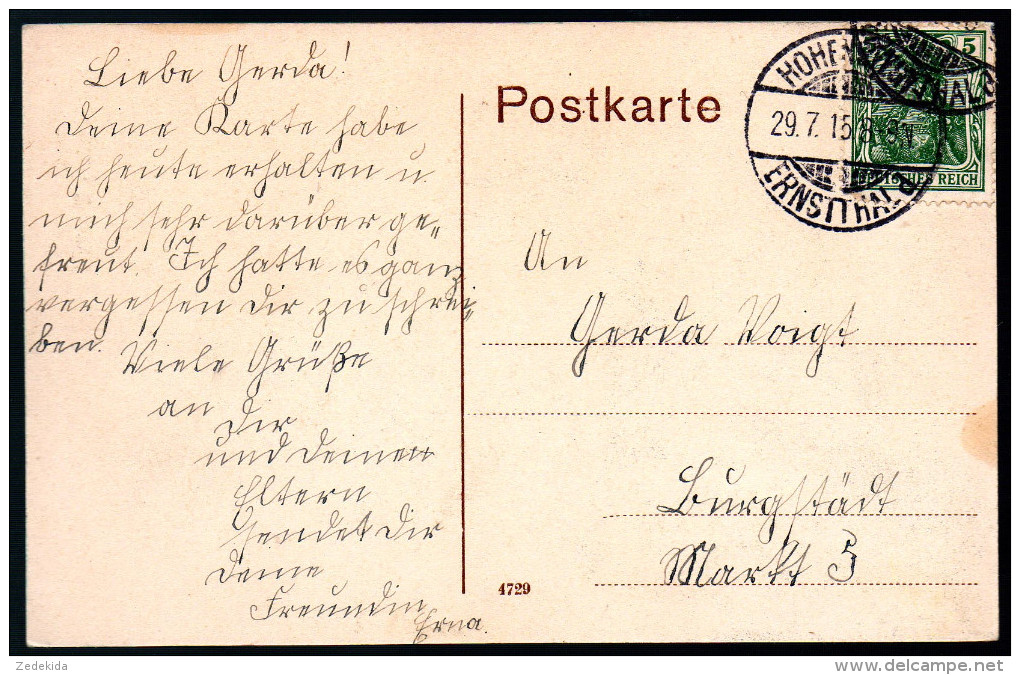 Liebe Gerda!
Deine Karte habe
ich heute erhalten u.
mich sehr darüber ge=
freut. Ich hatte es ganz
vergessen Dir zu schrei=
ben.
Viele Grüße
an Dir
und Deinen
Eltern
sendet Dir
Deine
Freundin
Erna.
Postkarte
5
HOHENSTEIN
29. 7. 15 8-9V
ERNSTTHAL
DEUTSCHES REICH
An
Gerda Voigt
Burgstädt
Markt 5
4729
Zedekida
www.delcampe.net